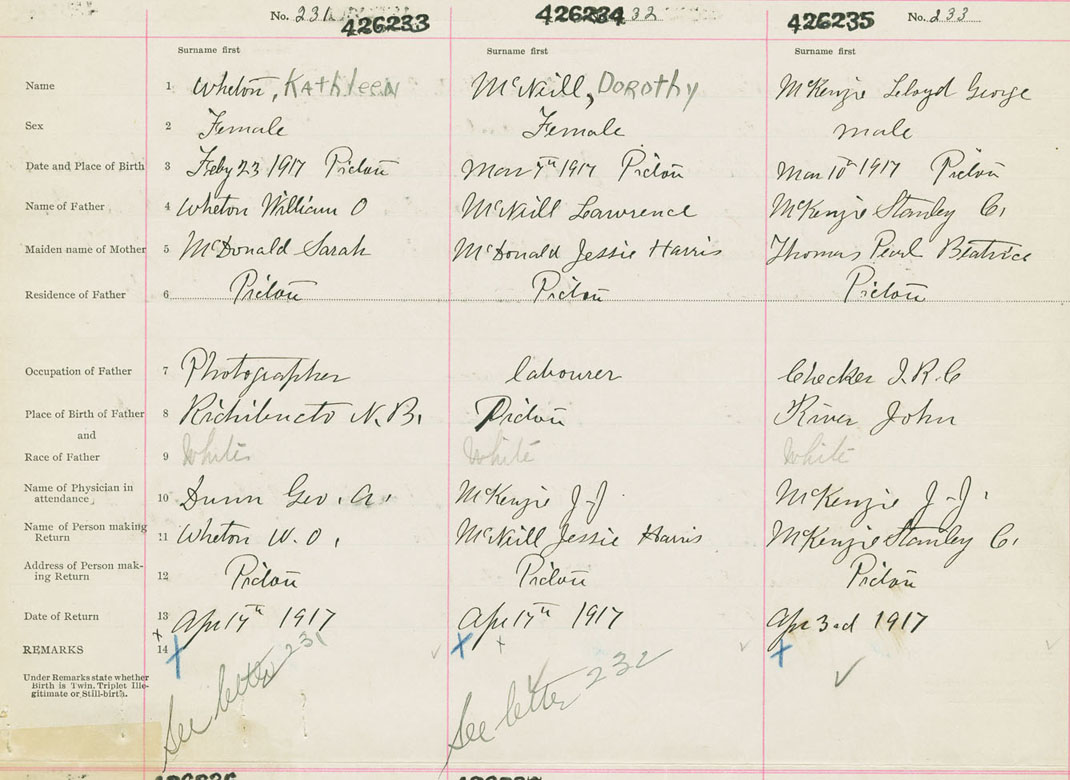 No. 231 426233 426234 32 426235 No. 233
Surname first Surname first Surname first
Name 1 Wheton, Kathleen McNeill, Dorothy McKenzie Lloyd George
Sex 2 Female Female male
Date and Place of Birth 3 Feby 23 1917 Pictou Mar 7th 1917 Pictou Mar 10th 1917 Pictou
Name of Father 4 Wheton William O McNeill Lawrence McKenzie Stanley C.
Maiden name of Mother 5 McDonald Sarah McDonald Jessie Harris Thomas Pearl Beatrice
Residence of Father 6 Pictou Pictou Pictou
Occupation of Father 7 Photographer labourer Checker I.R.C
Place of Birth of Father 8 Richibucto N.B. Pictou River John
and
Race of Father 9 White White White
Name of Physician in
attendance 10 Dunn Geo. A. McKenzie J-J McKenzie J-J.
Name of Person making
Return 11 Wheton W.O. McNeill Jessie Harris McKenzie Stanley C.
Address of Person mak-
ing Return 12 Pictou Pictou Pictou
Date of Return 13 Apr 17th 1917 Apr 17th 1917 Apr 3rd 1917
REMARKS 14
Under Remarks state whether
Birth is Twin, Triplet Ille-
gitimate or Still-birth.
See letter 231 See letter 232